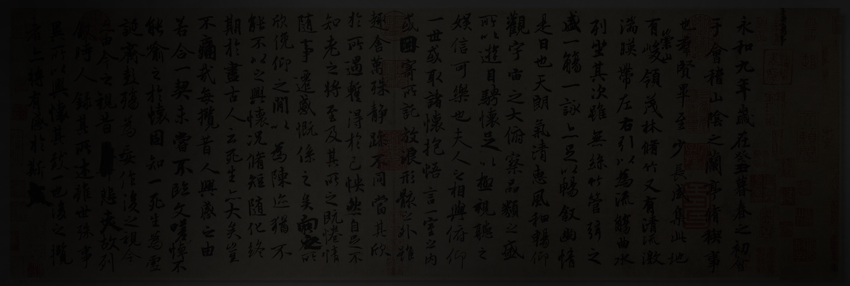 永和九年歲在癸丑暮春之初會
于會稽山陰之蘭亭脩稧事
也羣賢畢至少長咸集此地
有崇山峻領茂林脩竹又有清流激
湍暎帶左右引以為流觴曲水
列坐其次雖無絲竹管弦之
盛一觴一詠亦足以暢敘幽情
是日也天朗氣清惠風和暢仰
觀宇宙之大俯察品類之盛
所以遊目騁懷足以極視聽之
娛信可樂也夫人之相與俯仰
一世或取諸懷抱悟言一室之內
或因寄所託放浪形骸之外雖
趣舍萬殊靜躁不同當其欣
於所遇暫得於己怏然自足不
知老之將至及其所之既惓情
隨事遷感慨係之矣向之所
欣俛仰之閒以為陳跡猶不
能不以之興懷況脩短隨化終
期於盡古人云死生亦大矣豈
不痛哉每攬昔人興感之由
若合一契未嘗不臨文嗟悼不
能喻之於懷固知一死生為虛
誕齊彭殤為妄作後之視今
亦由今之視昔悲夫故列
敘時人錄其所述雖世殊事
異所以興懷其致一也後之攬
者亦將有感於斯文